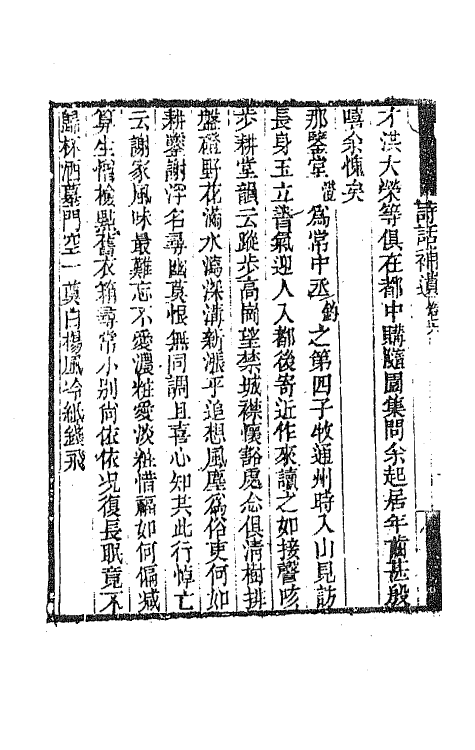 詩話補遺 卷六
才洪大榮等俱在都中購隨園集問余起居年齒甚殷
嘻余愧矣
那鑒堂 為常中丞鈞之第四子牧通州時入山見訪
長身玉立簪氣迎人入都後寄近作來讀之如接聲咳
步耕堂韻云蹤步高岡望禁城襟懷豁處念俱清樹排
盤磴野花滿水瀉深溝新漲平追想風塵為俗吏何如
耕鑿謝浮名尋幽莫恨無同調且喜心知共此行悼亡
云謝家風味最難忘不愛濃粧愛淡粧惜福如何偏減
算生憎檢點舊衣箱尋常小別尚依依况復長眠竟不
歸杯酒墓門空一奠白楊風冷紙錢飛